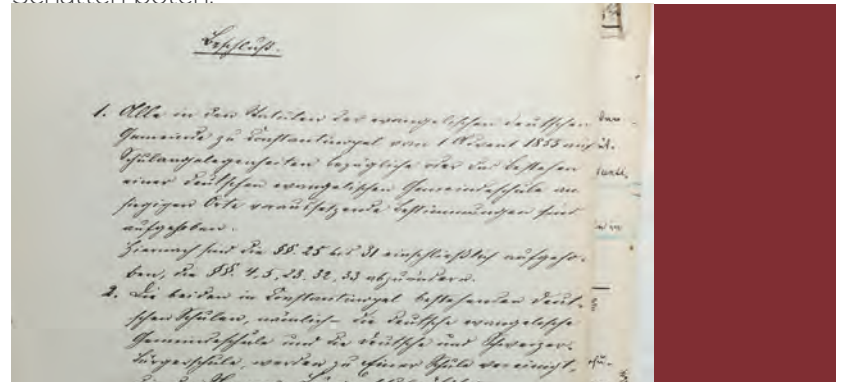 Schatten boten.
Beschluß.
1. Alle in den Statuten der evangelischen deutschen
Gemeinde zu Constantinopel vom 1 Advent 1855 auf
Schulangelegenheiten bezügliche oder das Bestehen
einer deutschen evangelischen Gemeindeschule am
hiesigen Orte voraussetzende Bestimmungen sind
aufgehoben.
Hiernach sind die §§. 25 bis 31 einschließlich aufgeho-
ben, die §§. 4, 5, 23. 32, 33 abzuändern.
2. Die beiden in Constantinopel bestehenden deut-
schen Schulen, nämlich die deutsche evangelische
Gemeindeschule und die deutsche und Schweizer-
bürgerschule, werden zu Einer Schule vereinigt,